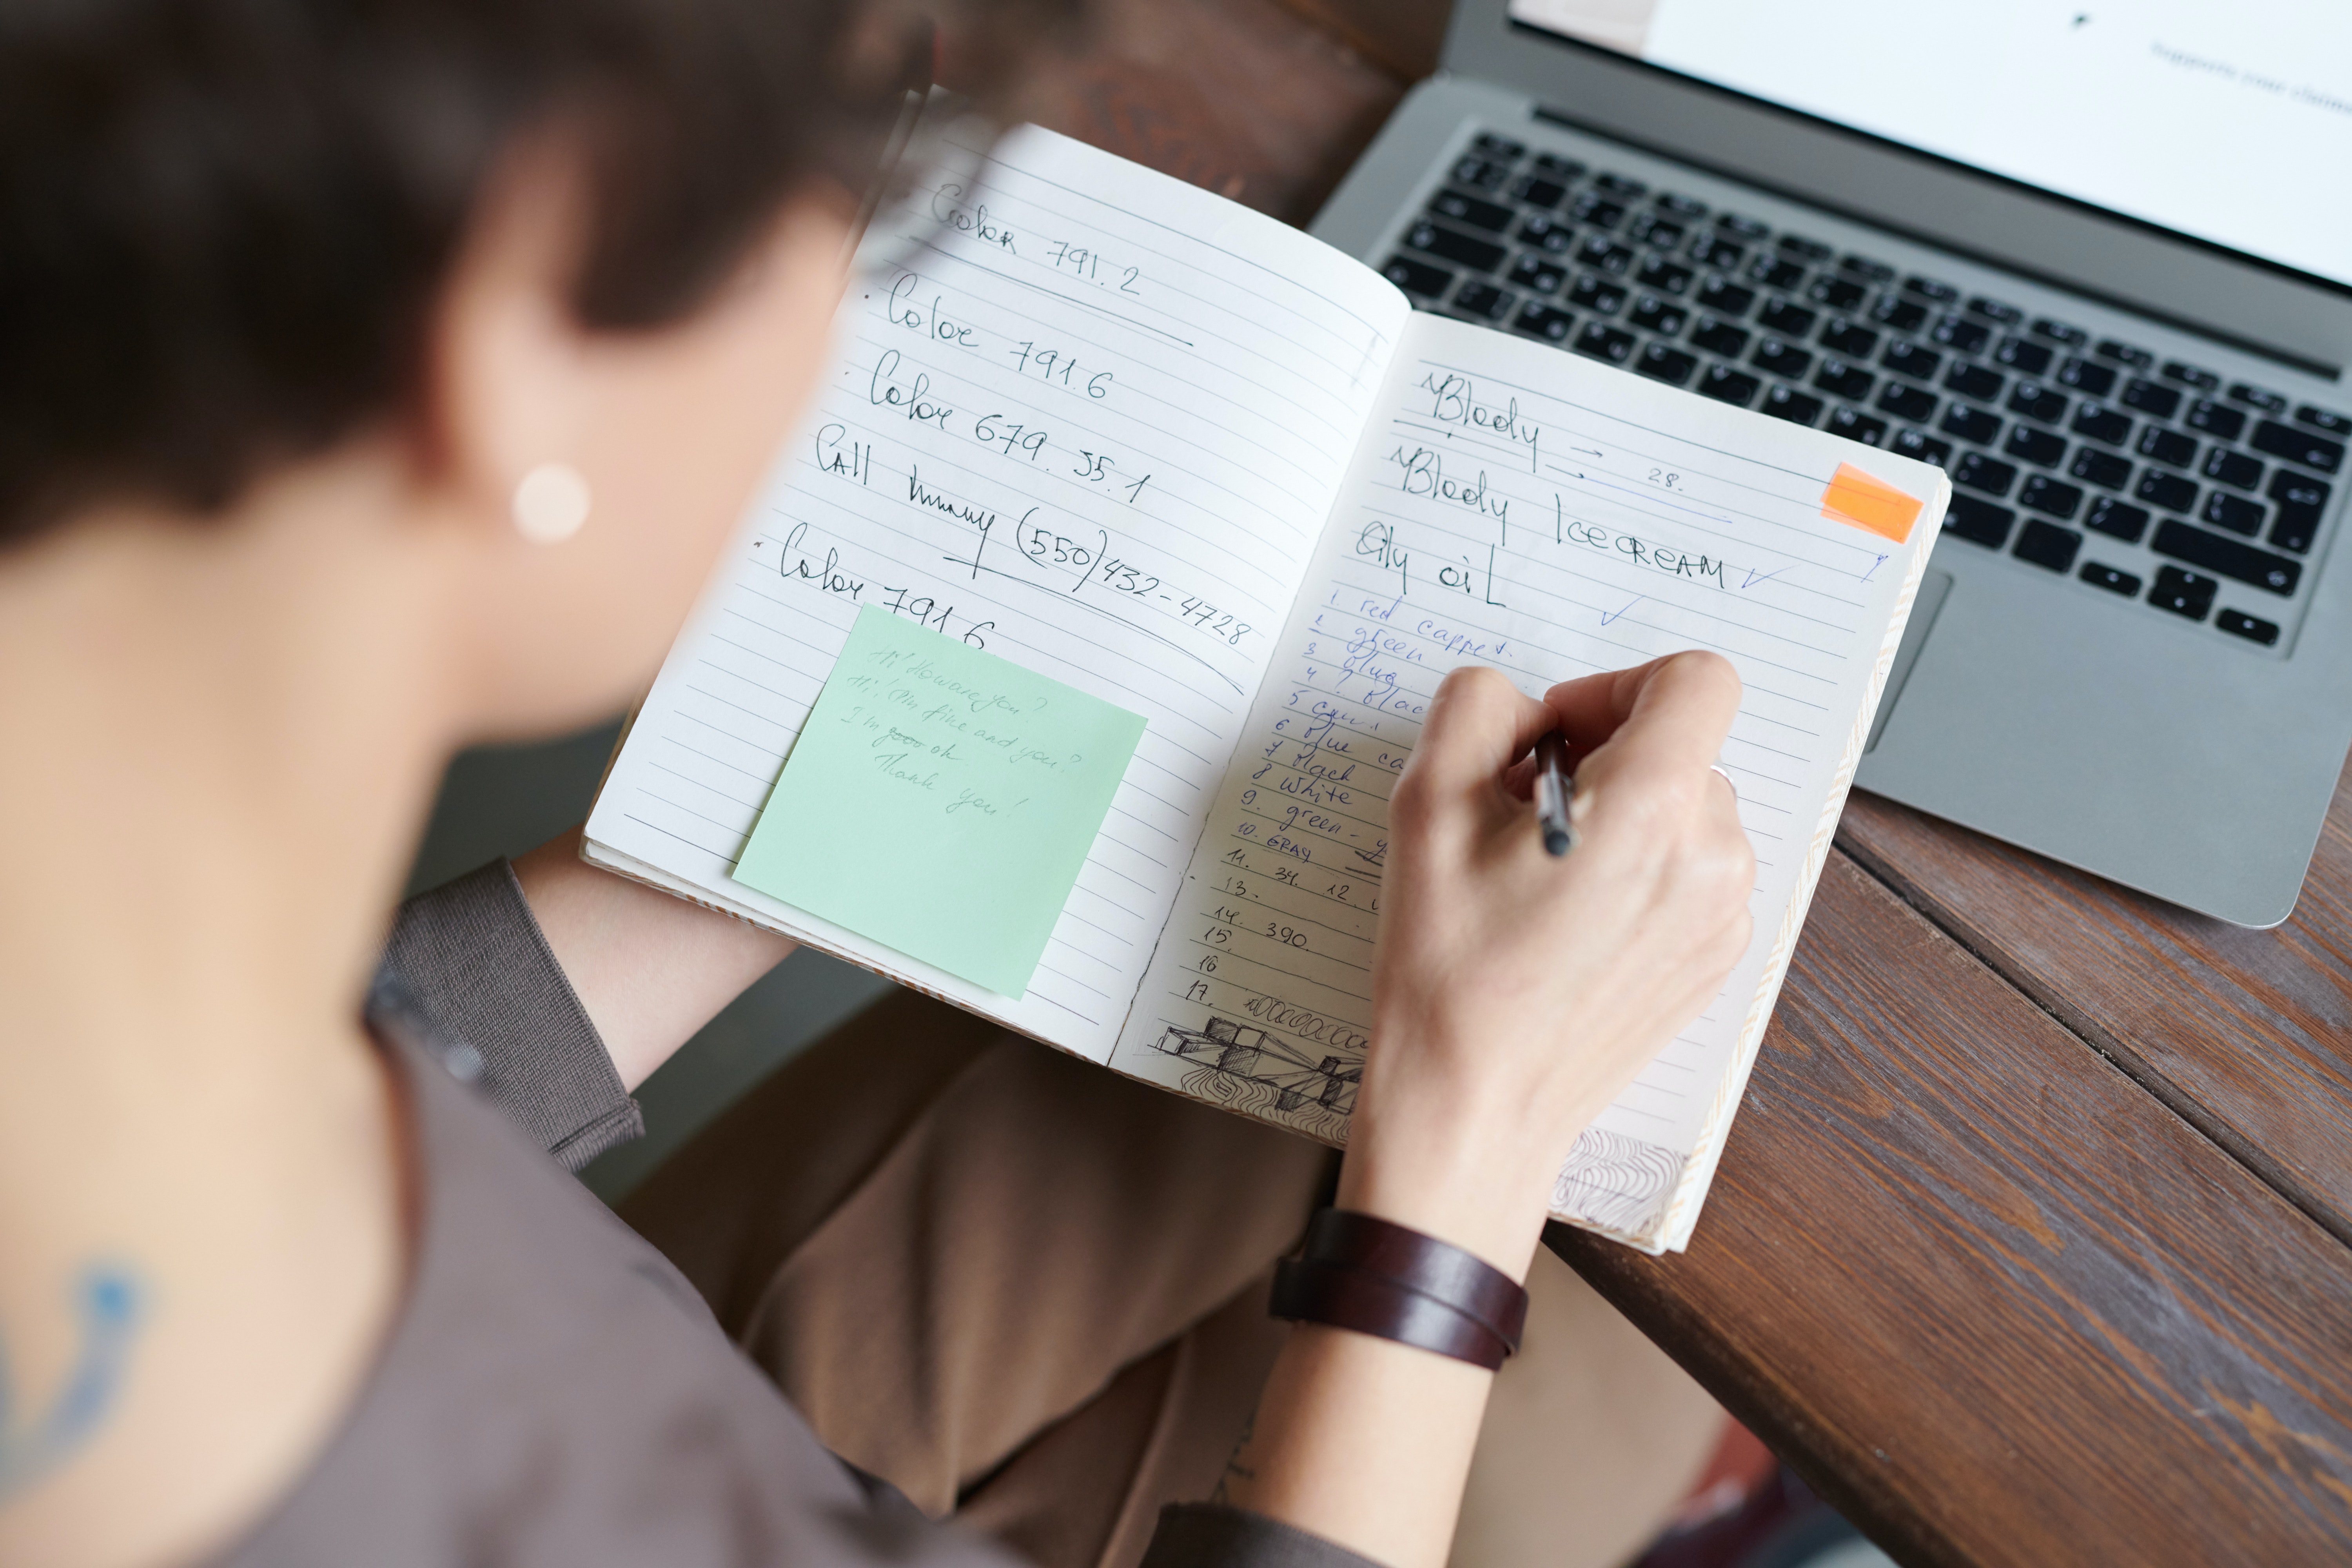 Color 791.2
Color 791 6
Color 679. 35.1
Call (550) 432-4728
Color 791 6
Hi! How are you?
Hi! I'm fine and you?
I'm ok
Thank you!
Bloody → 28.
Bloody Icecream
Oily oil
1. red carpet.
2 green
3 blue
4 ?
5
6 blue
7 black
8 white
9. green-
10. GRAY
11. 34. 12.
13.
14. 390.
15.
16
17.
Supports your